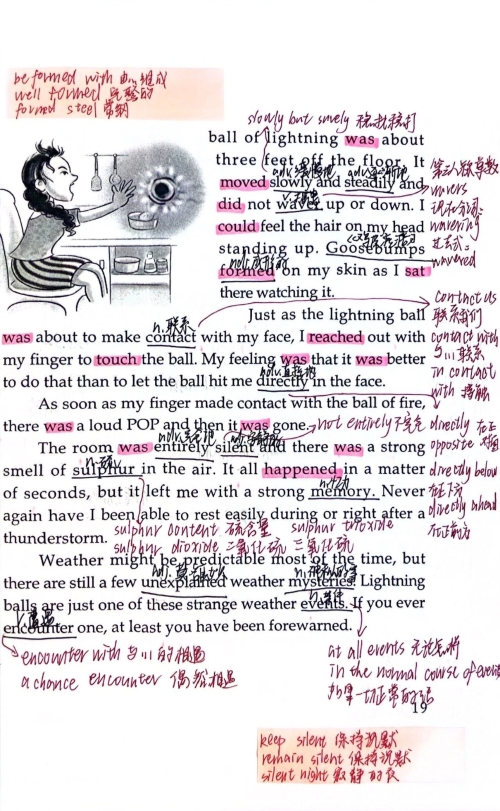 be formed with 由...组成
well formed
formed steel
slowly but surely
ball of lightning was about
three feet off the floor. It
moved slowly and steadily and
did not waver up or down. I
could feel the hair on my head
standing up. Goosebumps
formed on my skin as I sat
there watching it.
wavers
现在分词:
wavering
过去式:
wavered
Just as the lightning ball
n.联系
was about to make contact with my face, I reached out with
my finger to touch the ball. My feeling was that it was better
to do that than to let the ball hit me directly in the face.
contact us
联系我们
contact with
与...联系
in contact
with 接触
As soon as my finger made contact with the ball of fire,
there was a loud POP and then it was gone.
not entirely 不完全
The room was entirely silent and there was a strong
smell of sulphur in the air. It all happened in a matter
of seconds, but it left me with a strong memory. Never
again have I been able to rest easily during or right after a
thunderstorm.
directly
opposite
directly below
directly ahead
在正前方
sulphur content 硫含量 sulphur trioxide
sulphur dioxide 二氧化硫 三氧化硫
Weather might be predictable most of the time, but
there are still a few unexplained weather mysteries. Lightning
n.事件
balls are just one of these strange weather events. If you ever
v.遭遇
encounter one, at least you have been forewarned.
encounter with 与...的相遇
a chance encounter 偶然相遇
at all events 无论怎样
in the normal course of events
19
keep silent 保持沉默
remain silent 保持沉默
silent night 寂静的夜